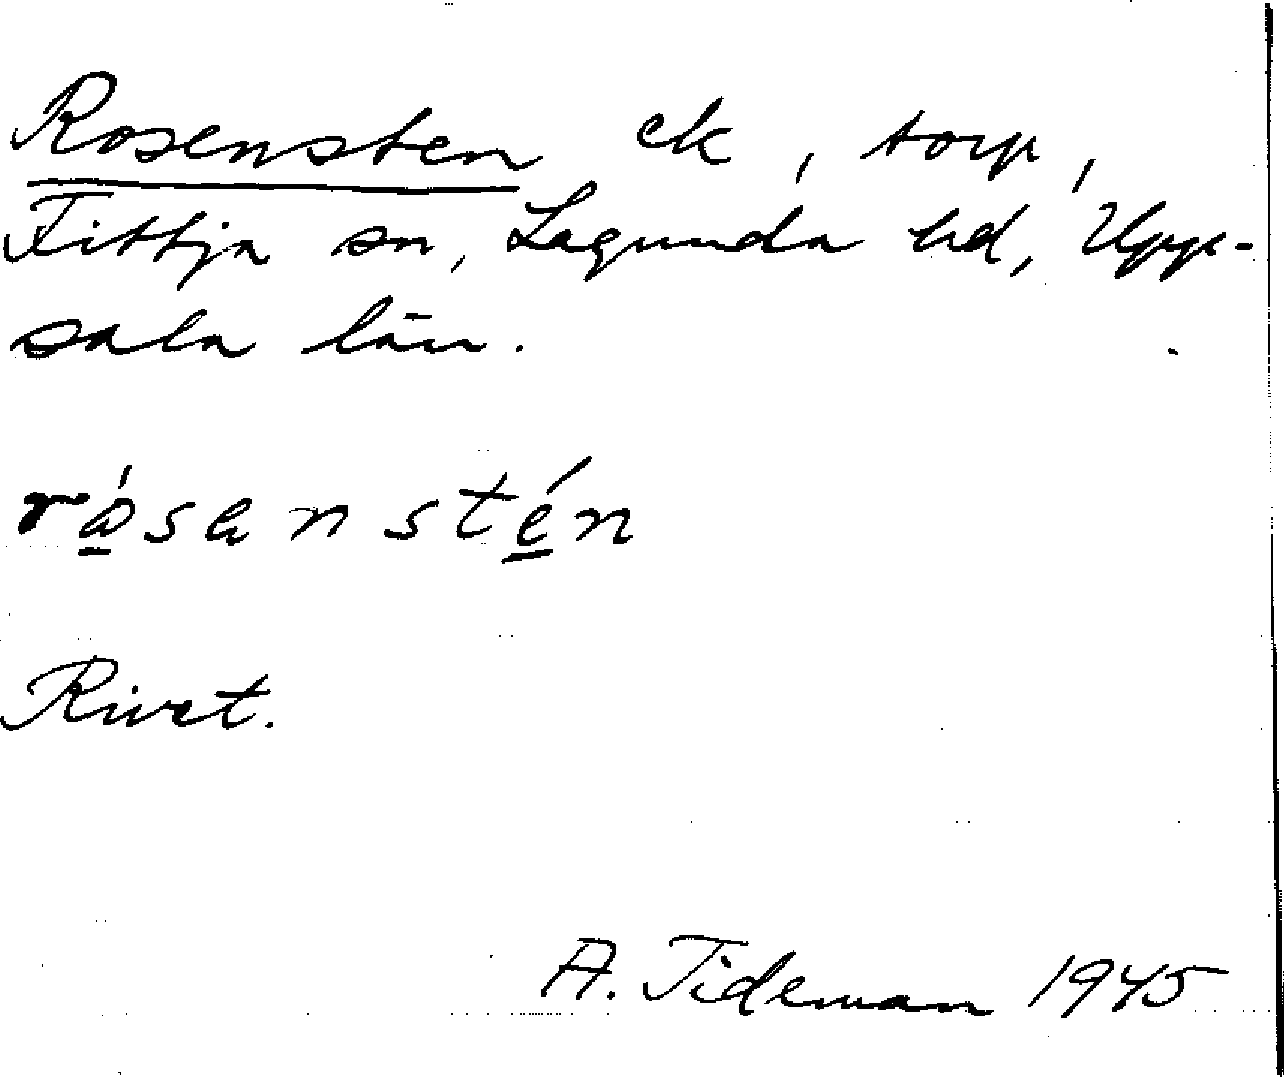 Rosensten ek, torp,
Fittja sn, Lagunda hd, Upp-
sala län.
rósanstén
Rivet.
A. Tideman 1945